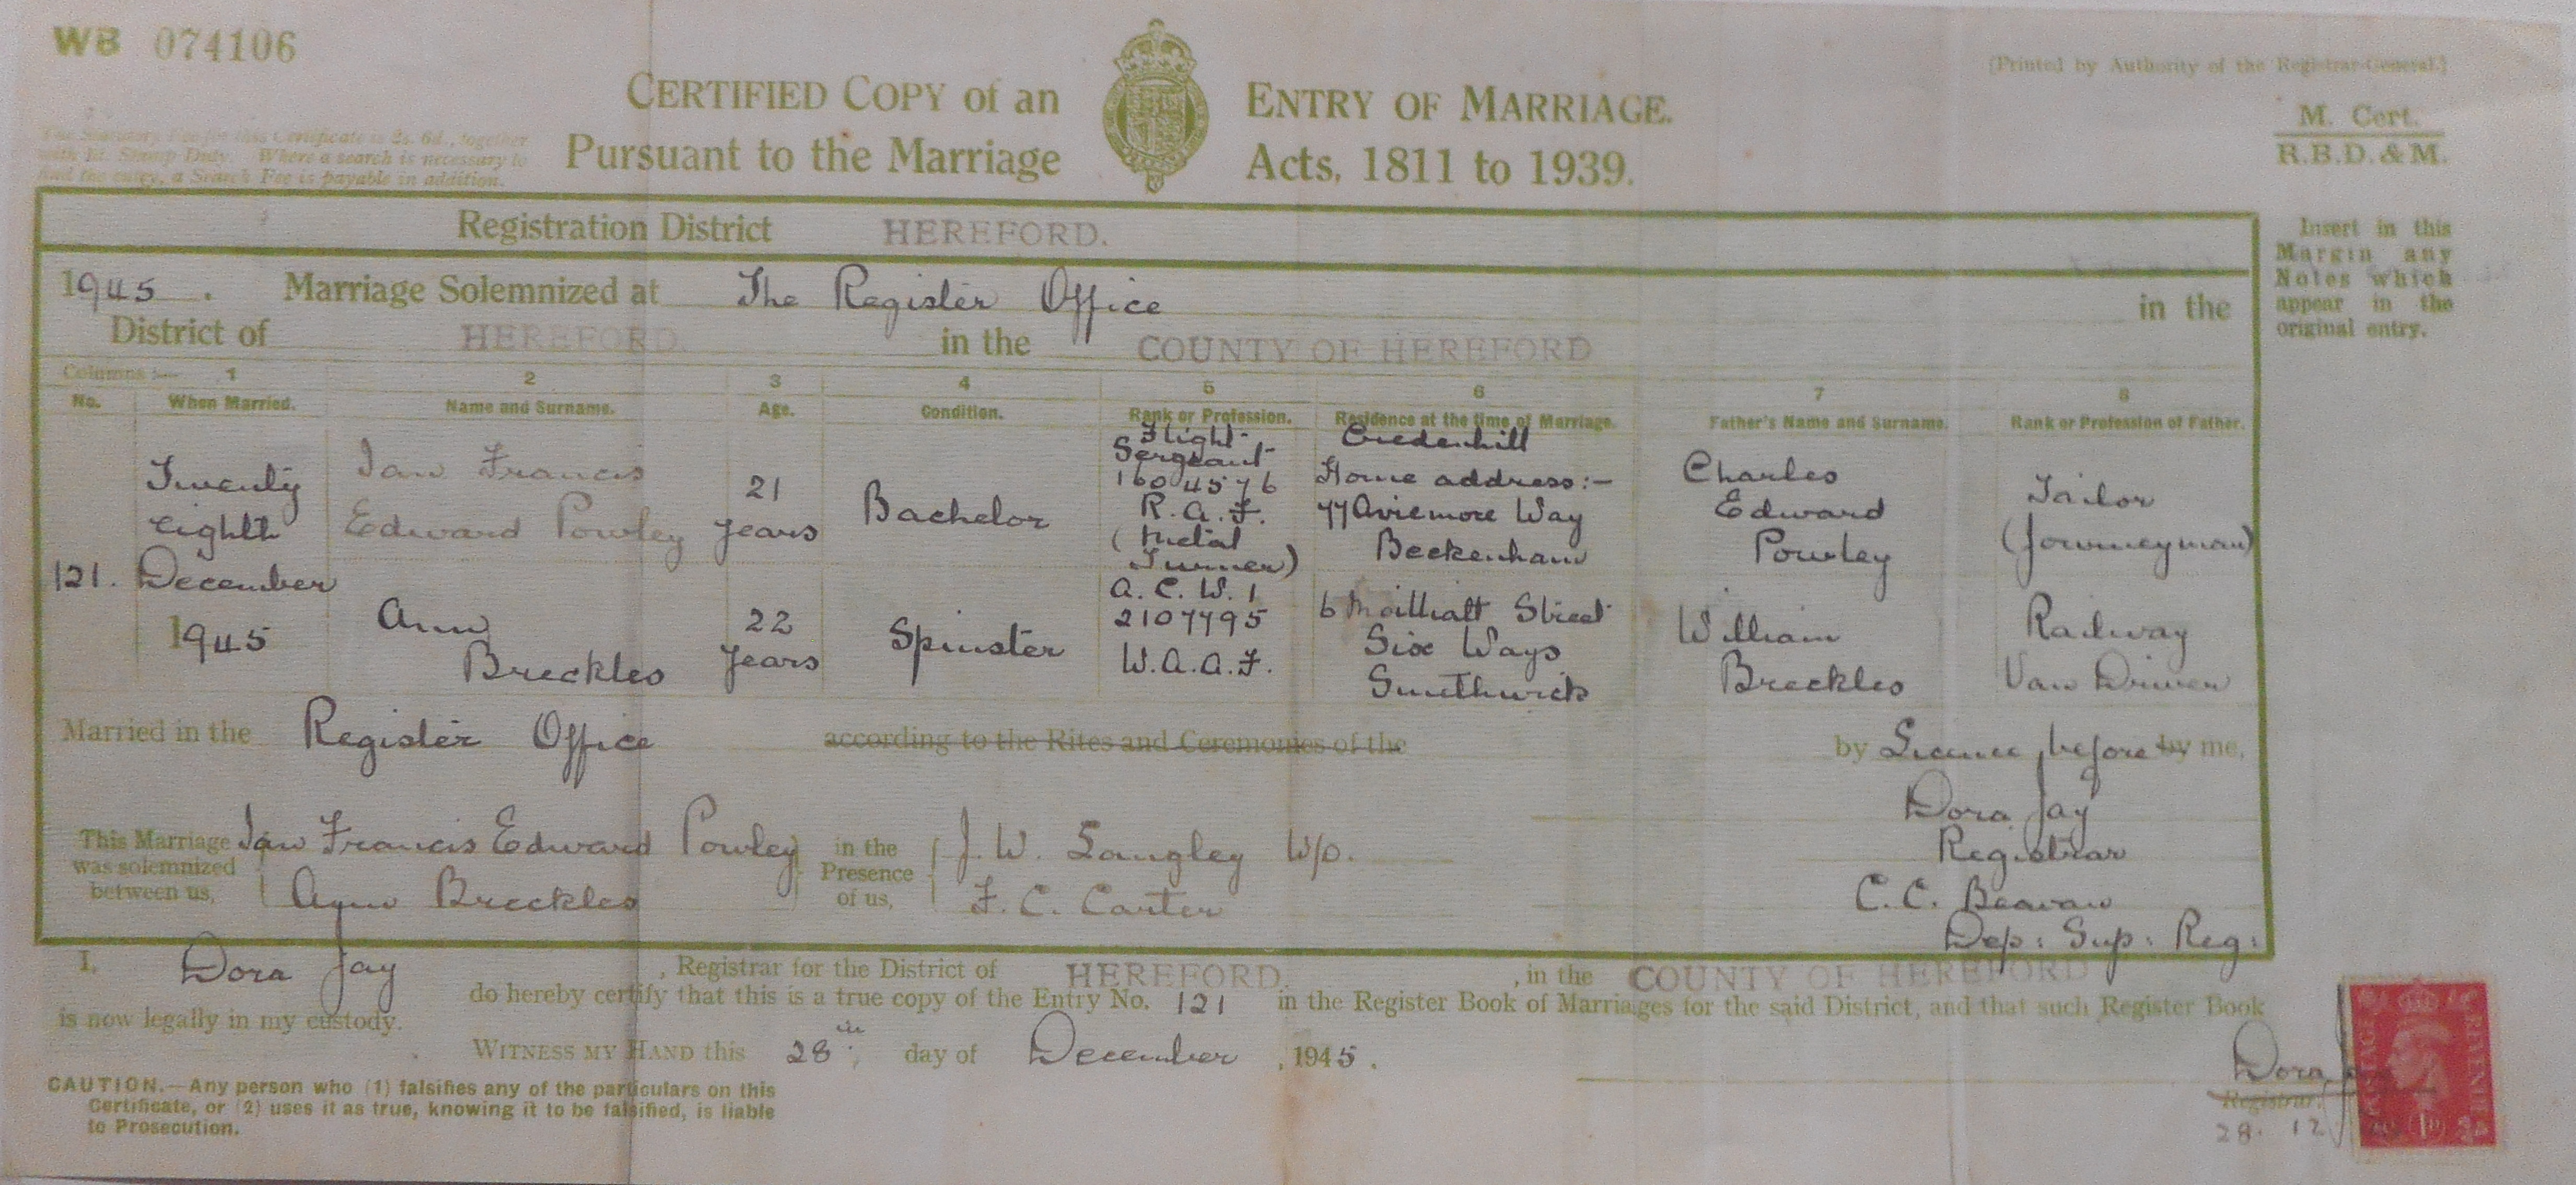 WB 074106
(Printed by Authority of the Registrar-General.)
CERTIFIED COPY of an ENTRY OF MARRIAGE.
Pursuant to the Marriage Acts, 1811 to 1939.
M. Cert.
R.B.D. & M.
The Statutory Fee for this Certificate is 2s. 6d., together
with 1d. Stamp Duty. Where a search is necessary to
find the entry, a Search Fee is payable in addition.
Registration District HEREFORD.
Insert in this
Margin any
Notes which
appear in the
original entry.
1945. Marriage Solemnized at The Register Office in the
District of HEREFORD. in the COUNTY OF HEREFORD
Columns :— 1 2 3 4 5 6 7 8
No. When Married. Name and Surname. Age. Condition. Rank or Profession. Residence at the time of Marriage. Father's Name and Surname. Rank or Profession of Father.
121. Twenty
eighth
December
1945
Ian Francis
Edward Powley
21
years
Bachelor
Flight
Sergeant
1604576
R.A.F.
(Metal
Turner)
Credenhill
Home address:-
77 Aviemore Way
Beckenham
Charles
Edward
Powley
Tailor
(Journeyman)
Ann
Breckles
22
years
Spinster
A.C.W.1
2107795
W.A.A.F.
6 Street
Six Ways
Smethwick
William
Breckles
Railway
Van Driver
Married in the Register Office according to the Rites and Ceremonies of the by Licence before by me,
This Marriage
was solemnized
between us,
Ian Francis Edward Powley
Ann Breckles
in the
Presence
of us,
J. W. Langley W/O.
F. C. Carter
Dora Jay
Registrar
C. C. Beavan
Dep: Sup: Reg:
I, Dora Jay, Registrar for the District of HEREFORD, in the COUNTY OF HEREFORD
do hereby certify that this is a true copy of the Entry No. 121 in the Register Book of Marriages for the said District, and that such Register Book
is now legally in my custody.
WITNESS MY HAND this 28th day of December, 1945.
Dora
Registrar.
28. 12
CAUTION.—Any person who (1) falsifies any of the particulars on this
Certificate, or (2) uses it as true, knowing it to be falsified, is liable
to Prosecution.
POSTAGE
REVENUE
1D